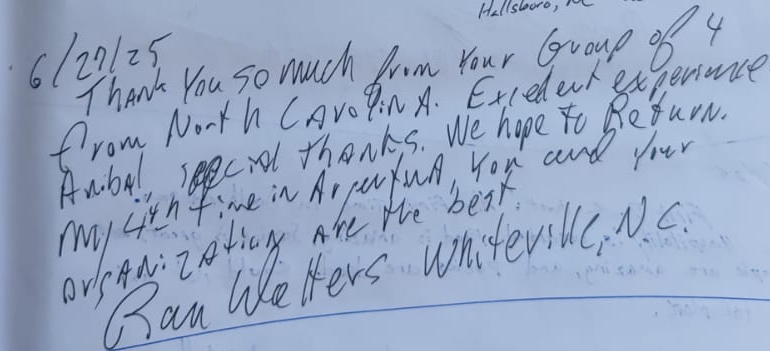 Hallsboro, NC
6/27/25
Thank You so much from Your Group of 4
from North CAROlinA. Excedent experience
Anibal special thanks. We hope to Return.
My 4th time in ArgentinA, You and your
organizAtion are the best.
Whiteville, NC.